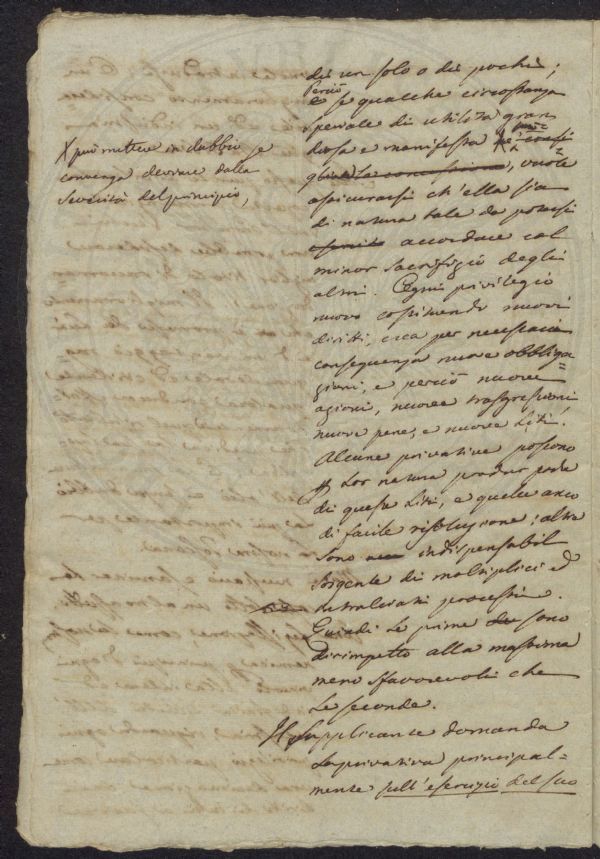 X può mettere in dubbio se
convenga deviare dalla
severità del principio,
di un solo o di pochi;
Perciò
e se qualche circostanza
speciale di utilità gran
diosa e manifesta può
la concessione, vuole
assicurarsi ch'ella sia
di natura tale da potersi
accordare col
minor sacrifizio degli
altri. Ogni privilegio
nuovo costituendo nuovi
diritti, crea per necessaria
conseguenza nuove obbliga=
zioni, e perciò nuove
azioni, nuove trasgressioni,
nuove pene, e nuove Liti.
Alcune privative possono
p Lor natura produr poche
di queste Liti, e quelle anco
di facile risoluzione; altre
sono indispensabil
sorgente di moltiplici ed
intralciati processi.
Quindi le prime sono
dirimpetto alla massima
meno sfavorevoli che
le seconde.
Il supplicante domanda
la privativa principal=
mente sull'esercizio del suo